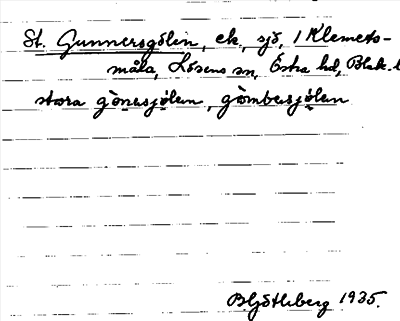 St. Gunnersgölen, ek., sjö, / Klemets-
måla, Lösens sn, Östra hd, Blek. l
stora gònasjölen, gòmbersjölen
B. Götlberg 1935.